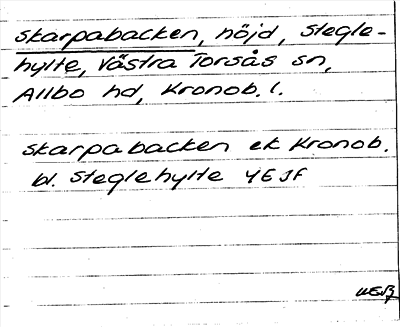 Skarpabacken, höjd, Stegle-
hylte, Västra Torsås sn,
Allbo hd, Kronob. l.
Skarpabacken ek Kronob.
bl. Steglehylte 4E JF